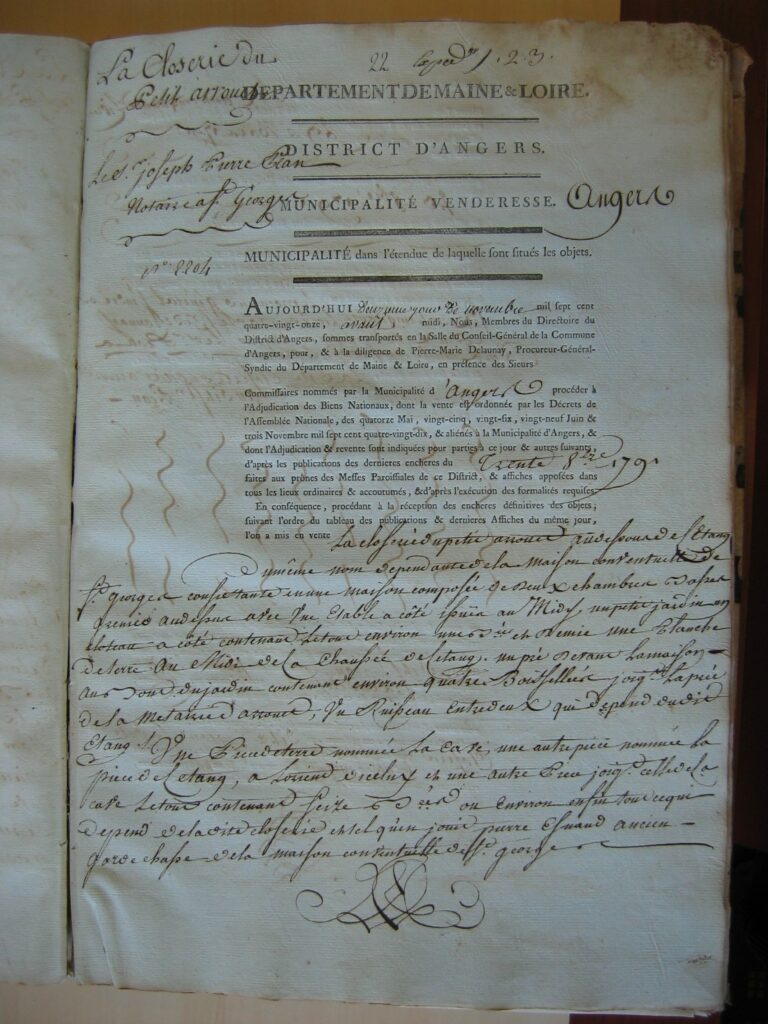 La Closerie du
Petit arrouet
22 1.2.3.
DEPARTEMENT DE MAINE & LOIRE.
DISTRICT D'ANGERS.
Le S. Joseph Pierre
Notaire a St. George
MUNICIPALITÉ VENDERESSE. Angers
MUNICIPALITÉ dans l'étendue de laquelle sont situés les objets.
N° 2204
AUJOURD'HUI jour de novembre mil sept cent
quatre-vingt-onze, avant midi, Nous, Membres du Directoire du
District d'Angers, sommes transportés en la Salle du Conseil-Général de la Commune
d'Angers, pour, & à la diligence de Pierre-Marie Delaunay, Procureur-Général-
Syndic du Département de Maine & Loire, en présence des Sieurs
Commissaires nommés par la Municipalité d'Angers procéder à
l'Adjudication des Biens Nationaux, dont la vente est ordonnée par les Décrets de
l'Assemblée Nationale, des quatorze Mai, vingt-cinq, vingt-six, vingt-neuf Juin &
trois Novembre mil sept cent quatre-vingt-dix, & aliénés à la Municipalité d'Angers, &
dont l'Adjudication & revente sont indiquées pour parties à ce jour & autres suivans,
d'après les publications des dernieres encheres du trente 8bre 1791
faites aux prônes des Messes Paroissiales de ce District, & affiches apposées dans
tous les lieux ordinaires & accoutumés, & d'après l'exécution des formalités requises
En conséquence, procédant à la réception des encheres définitives des objets,
suivant l'ordre du tableau des publications & dernieres Affiches du même jour,
l'on a mis en vente La closerie du petit arrouet au dessous de l'Etang
du même nom dependante de la maison conventuelle de
St. george consistante en une maison composée de deux chambres basses
Grenier au dessus avec une Etable a côté issuë au Midy un petit jardin en
closeau a côté contenant le tout environ une et demie une Planche
de terre au Midi de la Chaussée de l'etang. un pré devant la maison
au du jardin contenant environ quatre Boisselées joigt. la prée
de la metairie d'arrouet, un Ruisseau entre deux qui depend du dit
Etang.
Une Piece de terre nommée la cave, une autre piece nommée la
piece de l'etang, a l'orient d'icelui et une autre Piece joigt. celle de la
cave le tout contenant seize ou environ enfin tout ce qui
depend de la dite closerie et tel qu'en jouit pierre Esnaud ancien
garde chasse de la maison conventuelle de St. george